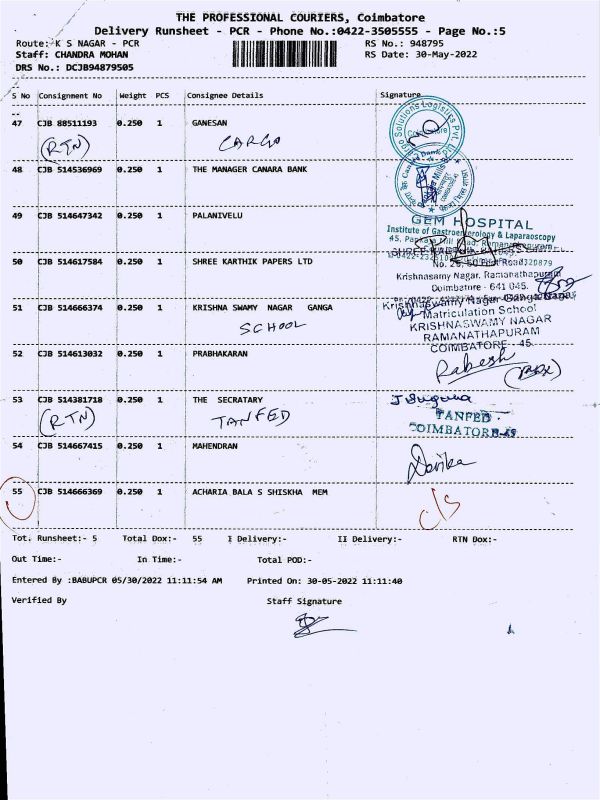 THE PROFESSIONAL COURIERS, Coimbatore
Delivery Runsheet - PCR - Phone No.:0422-3505555 - Page No.:5
Route: K S NAGAR - PCR RS No.: 948795
Staff: CHANDRA MOHAN RS Date: 30-May-2022
DRS No.: DCJB94879505
S No Consignment No Weight PCS Consignee Details Signature
47 CJB 88511193 0.250 1 GANESAN
(RTN) CARGO
48 CJB 514536969 0.250 1 THE MANAGER CANARA BANK
49 CJB 514647342 0.250 1 PALANIVELU
GEM HOSPITAL
Institute of Gastroenterology & Laparoscopy
45, Pankaja Mill Road, Ramanathapuram
50 CJB 514617584 0.250 1 SHREE KARTHIK PAPERS LTD
Krishnasamy Nagar, Ramanathapuram
Coimbatore - 641 045.
51 CJB 514666374 0.250 1 KRISHNA SWAMY NAGAR GANGA
SCHOOL
Matriculation School
KRISHNASWAMY NAGAR
RAMANATHAPURAM
COIMBATORE - 45.
52 CJB 514613032 0.250 1 PRABHAKARAN
Rakesh
53 CJB 514381718 0.250 1 THE SECRATARY
(RTN) TANFED
J Suguna
TANFED
COIMBATORE-45
54 CJB 514667415 0.250 1 MAHENDRAN
Devika
55 CJB 514666369 0.250 1 ACHARIA BALA S SHISKHA MEM
c/s
Tot. Runsheet:- 5 Total Dox:- 55 I Delivery:- II Delivery:- RTN Dox:-
Out Time:- In Time:- Total POD:-
Entered By :BABUPCR 05/30/2022 11:11:54 AM Printed On: 30-05-2022 11:11:40
Verified By Staff Signature